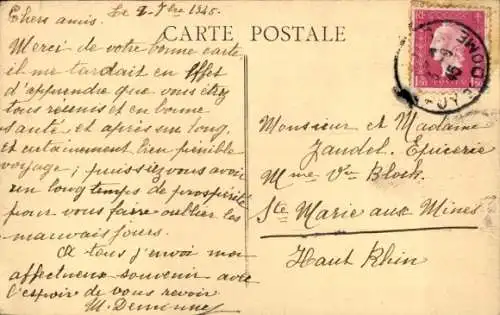 Chers amis. Le 7-7bre 1945.
CARTE POSTALE
Merci de votre bonne carte,
il me tardait en effet
d'apprendre que vous étiez
tous réunis et en bonne
santé et après un long,
et certainement bien pénible
voyage; puissiez vous avoir
un long temps de prospérité
pour vous faire oublier les
mauvais jours.
A tous j'envoi mon
affectueux souvenir avec
l'espoir de vous revoir
Monsieur et Madame
Jaudel. Epicerie
Mme Vve Bloch.
Ste Marie aux Mines
Haut Rhin
DOME
PUY